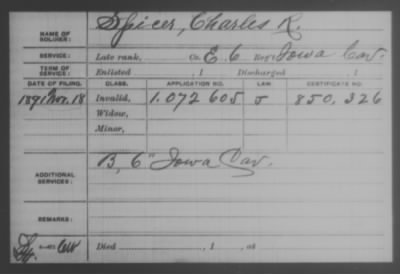 NAME OF SOLDIER: Spicer, Charles R.
SERVICE: Late rank, Co. E. 6 Reg't Iowa Cav.
TERM OF SERVICE: Enlisted , 1 Discharged , 1
DATE OF FILING. CLASS. APPLICATION NO. LAW. CERTIFICATE NO.
1891 Nov. 18 Invalid, 1.072 605 J 850.326
Widow,
Minor,
ADDITIONAL SERVICES: B, 6" Iowa Cav.
REMARKS:
Died , 1 , at